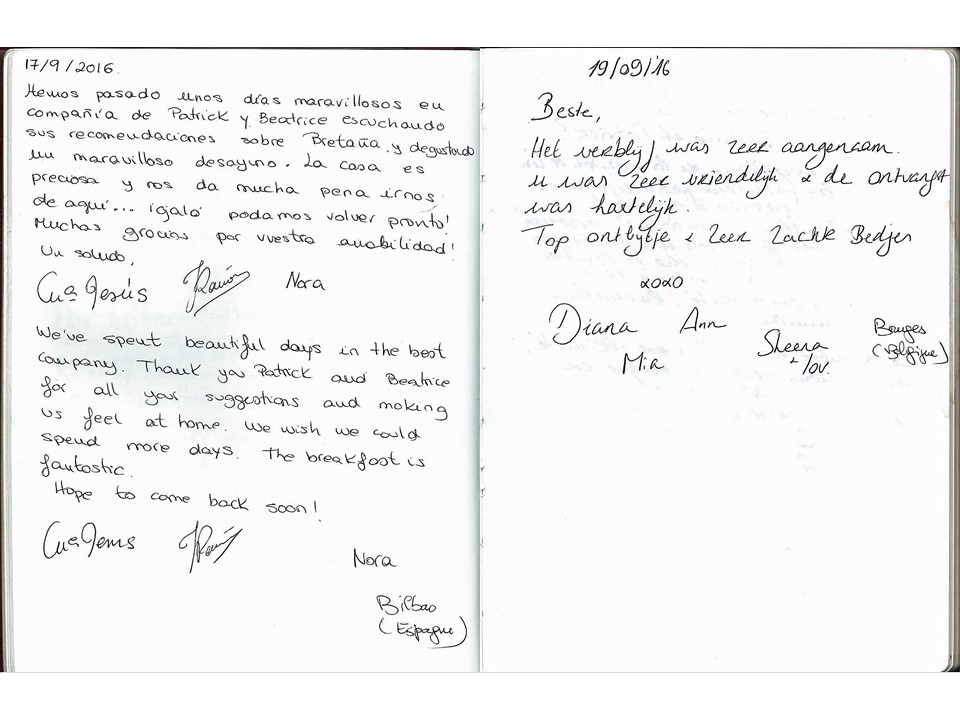 17/9/2016.
Hemos pasado unos días maravillosos en
compañía de Patrick y Beatrice escuchando
sus recomendaciones sobre Bretaña, y degustando
un maravilloso desayuno. La casa es
preciosa y nos da mucha pena irnos
de aquí... ¡ojalá podamos volver pronto!
Muchas gracias por vuestra amabilidad!
Un saludo,
Mª Jesús Ramón Nora
We've spent beautiful days in the best
company. Thank you Patrick and Beatrice
for all your suggestions and making
us feel at home. We wish we could
spend more days. The breakfast is
fantastic.
Hope to come back soon!
Mª Jesús Ramón
Nora
Bilbao
(Espagne)
19/09/'16
Beste,
Het verblijf was zeer aangenaam.
U was zeer vriendelijk & de ontvangst
was hartelijk.
Top ontbijtje & zeer zachte Bedjes
xoxo
Diana Ann
Mia
Sheena
+ Lov.
Bruges
(Belgique)